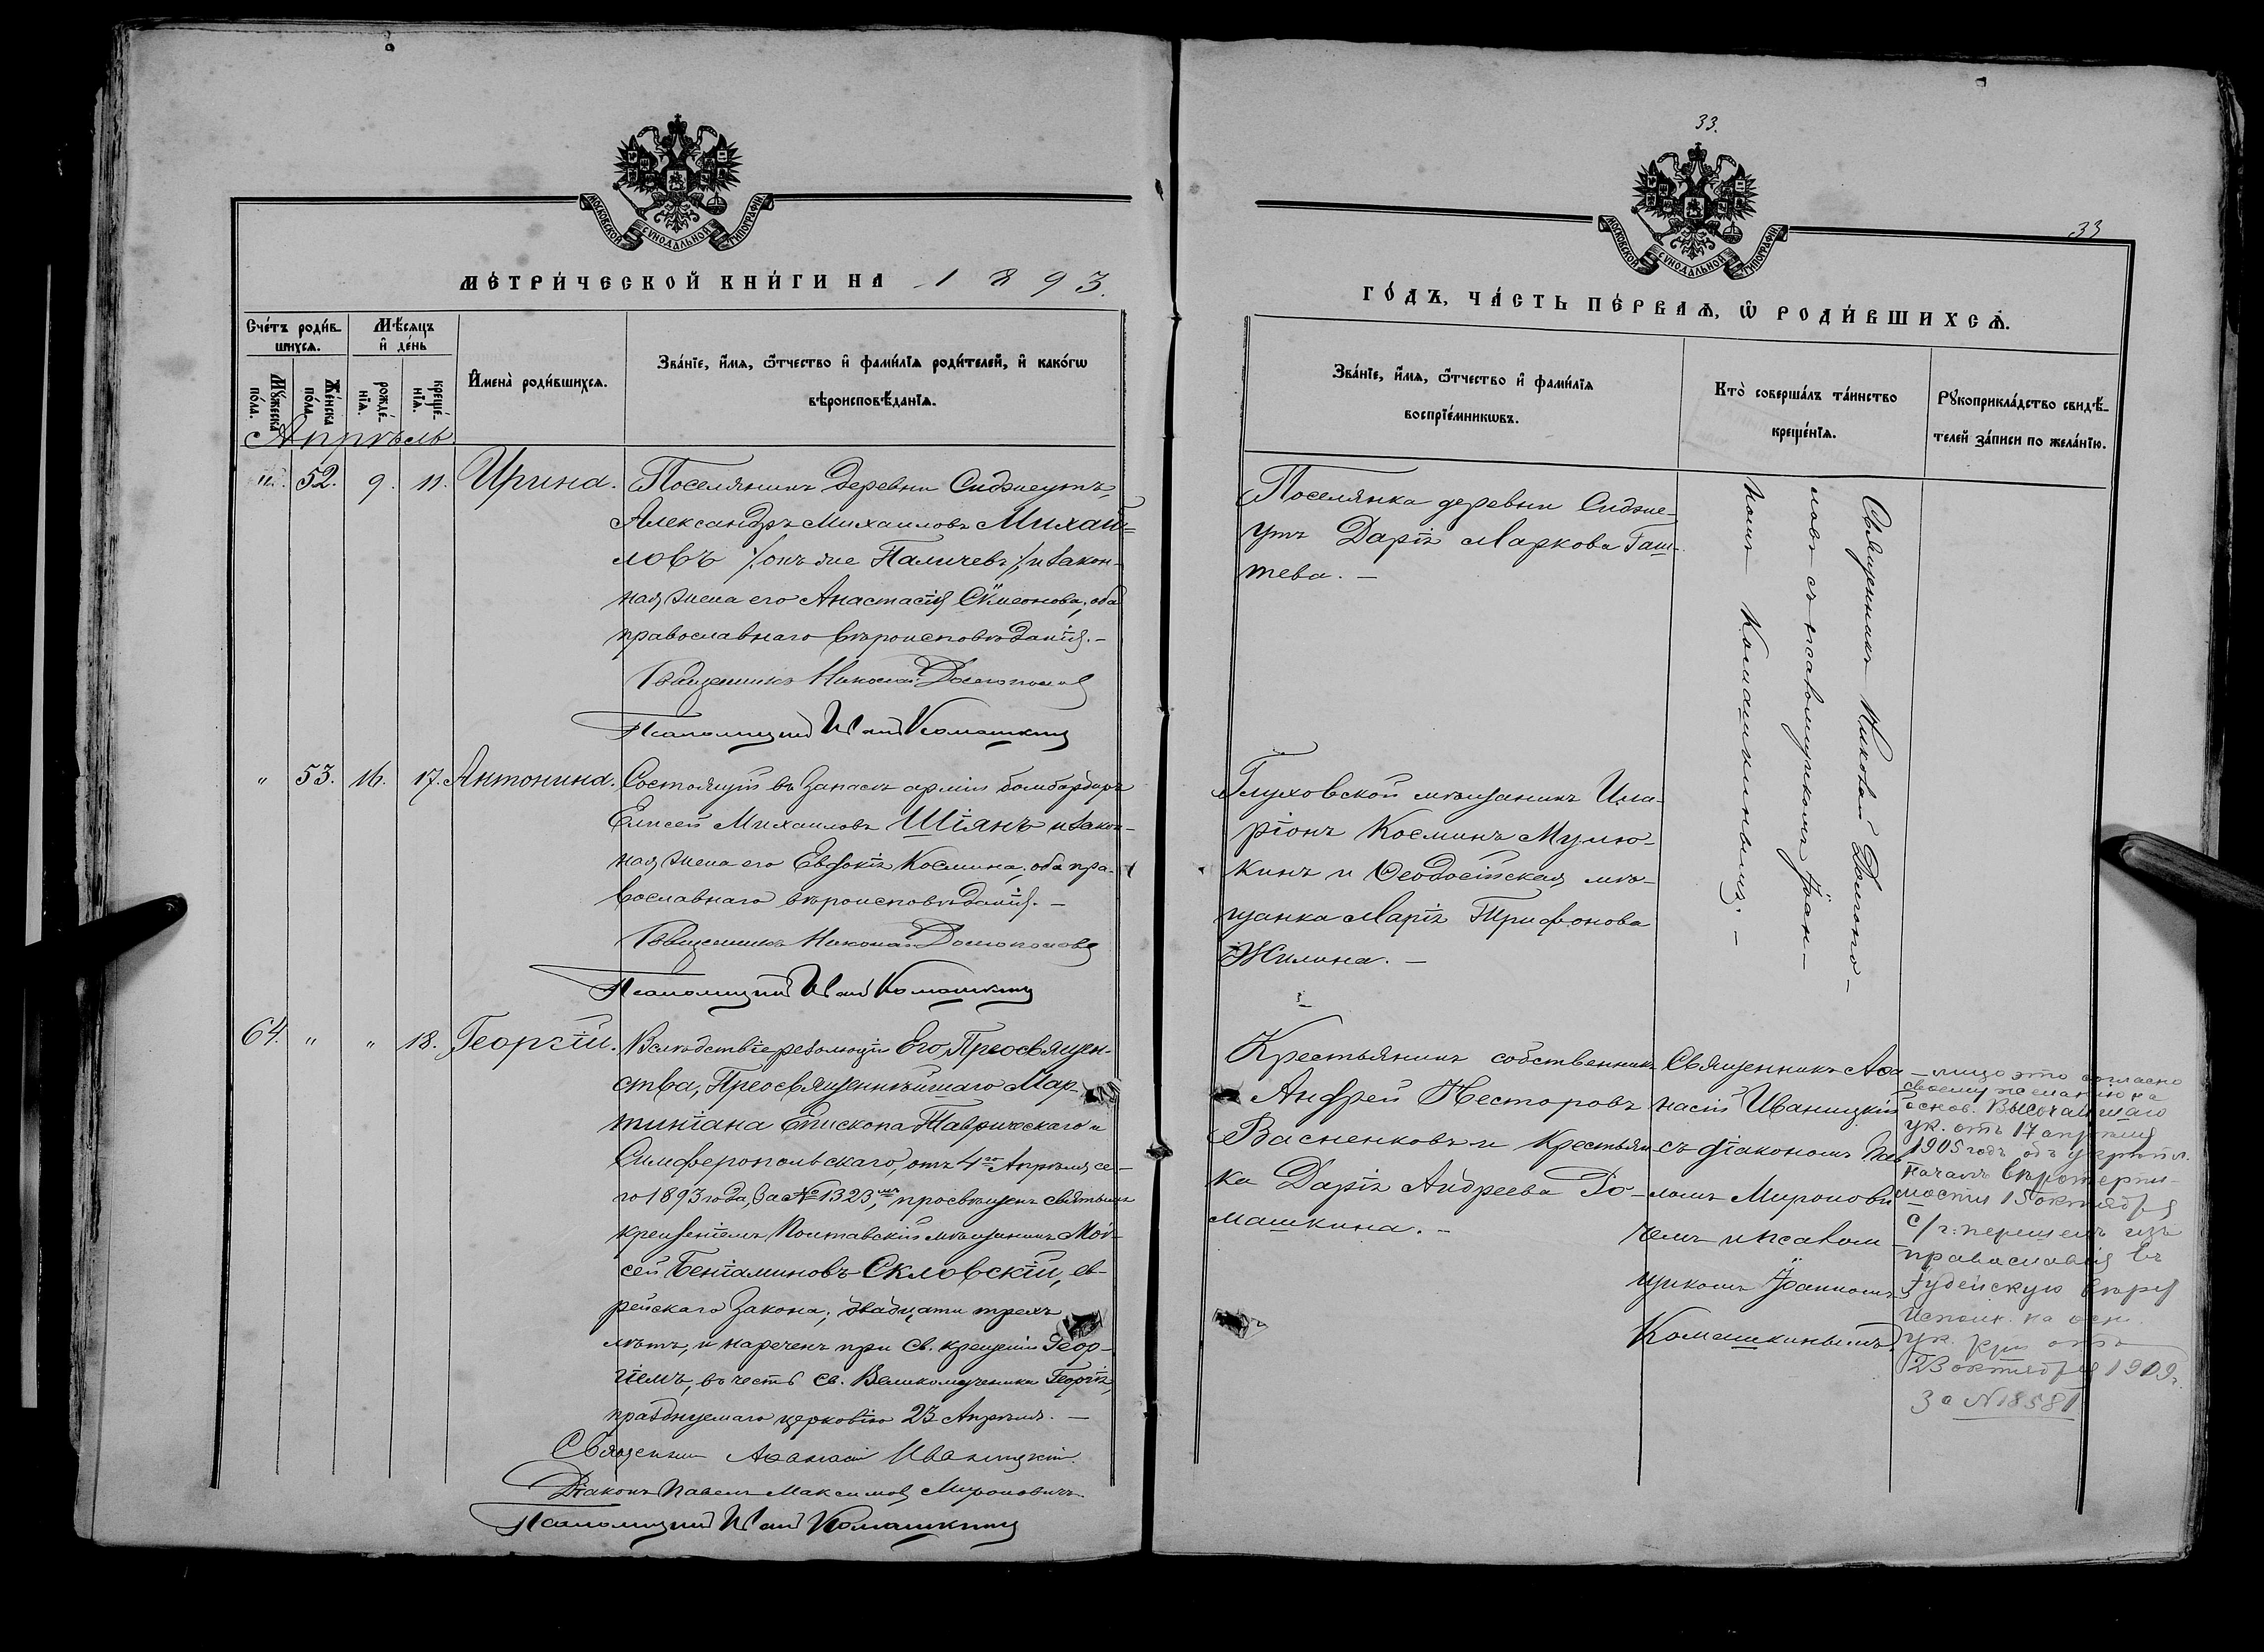 МОСКОВСКОЙ СѴНОДАЛЬНОЙ ТИПОГРАФІИ
МЕ́ТРИ́ЧЕСКОЙ КНИ́ГИ НА 1893.
Сче́тъ роди́в-
шихсѧ.
Мꙋ́жеска
по́ла.
Же́нска
по́ла.
Мѣ́сѧцъ
и҆ де́нь
рожде́-
нїѧ.
креще́-
нїѧ.
И҆мена̀ роди́вшихсѧ.
Зва́нїе, и҆́мѧ, ѻ҆́тчество и҆ фами́лїѧ роди́телей, и҆ како́гѡ
вѣроисповѣ́данїѧ.
Апрѣль.
" 52. 9. 11. Ирина. Поселянинъ деревни Сиджеутъ,
Александръ Михаиловъ Михай=
ловъ /: онъ же Паличевъ :/ и закон-
ная жена его Анастасія Сѵмеонова, оба
православнаго вѣроисповѣданія. –
Священникъ Николай Долгополовъ
Псаломщикъ Иванъ Комашкинъ
" 53. 16. 17. Антонина. Состоящій въ запасѣ арміи бомбардиръ
Елисей Михаиловъ Шіянъ и закон-
ная жена его Евдокія Космина, оба пра-
вославнаго вѣроисповѣданія. –
Священникъ Николай Долгополовъ
Псаломщикъ Иванъ Комашкинъ
64. " " 18. Георгій. Вслѣдствіе резолюціи Его Преосвящен-
ства, Преосвященнѣйшаго Мар-
тиніана Епископа Таврическаго и
Симферопольскаго, отъ 4го Апрѣля се-
го 1893 года, за № 1323мъ, просвѣщенъ святымъ
крещеніемъ Полтавскій мѣщанинъ Мои-
сей Беніаминовъ Скловскій, ев-
рейскаго закона, двадцати трехъ
лѣтъ, и нареченъ при св. крещеніи Геор-
гіемъ, въ честь св. Великомученика Георгія,
празднуемаго церковію 23 Апрѣля. –
Священникъ Аѳанасій Иваницкій.
Діаконъ Павелъ Максимовъ Мироновичъ.
Псаломщикъ Иванъ Комашкинъ
33.
33
МОСКОВСКОЙ СѴНОДАЛЬНОЙ ТИПОГРАФІИ
ГО́ДЪ, ЧА́СТЬ ПЕ́РВАѦ, Ѡ҆ РОДИ́ВШИХСѦ.
Зва́нїе, и҆́мѧ, ѻ҆́тчество и҆ фами́лїѧ
воспрїе́мникѡвъ.
Кто̀ соверша́лъ та́инство
креще́нїѧ.
Рꙋкоприкла́дство свидѣ́-
телей за́писи по жела́нїю.
Поселянка деревни Сиджe-
утъ Дарія Маркова Таш-
тева. –
Священникъ Николай Долгопо-
ловъ съ псаломщикомъ Іоан-
номъ Комашкинымъ. –
Глуховской мѣщанинъ Ила-
ріонъ Косминъ Мулю-
кинъ и Ѳеодосійская мѣ-
щанка Марія Трифонова
Жилина. –
Крестьянинъ собственникъ
Андрей Несторовъ
Васненковъ и крестьян-
ка Дарія Андреева Ро-
машкина. –
Священникъ Аѳа-
насій Иваницкій
съ діакономъ Пав-
ломъ Миронови-
чемъ и псалом-
щикомъ Іоанномъ
Комашкинымъ.
– лицо это согласно
своему желанію на
основ. Высочайшаго
ук. отъ 17 апрѣля
1905 года объ укрѣпл.
началъ вѣротерпи-
мости 15 октября
с/г. перешелъ изъ
православія въ
Іудейскую вѣру
Исполн. на осн.
ук. отъ
23 октября 1909 г.
За № 18581